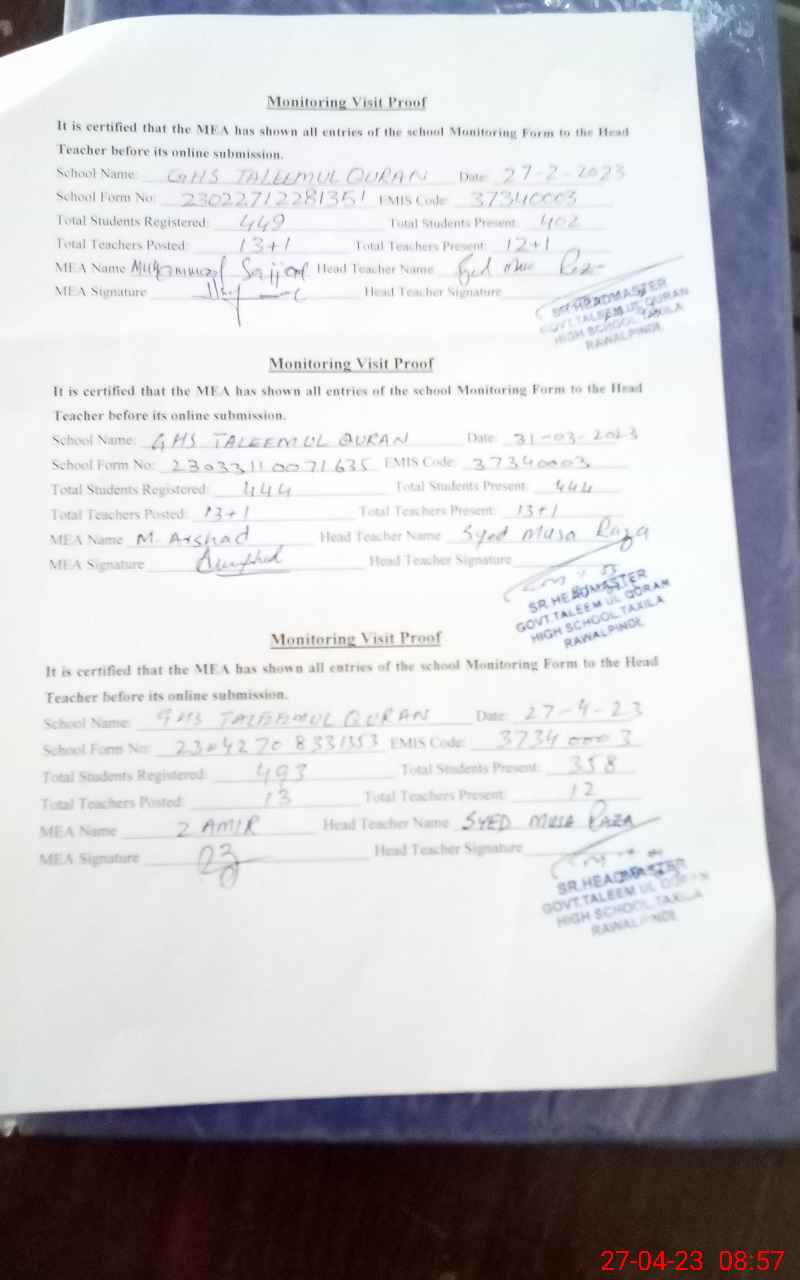 Monitoring Visit Proof
It is certified that the MEA has shown all entries of the school Monitoring Form to the Head
Teacher before its online submission.
School Name: GHS TALEEMUL QURAN Date: 27-2-2023
School Form No: 23022712281351 EMIS Code: 37340003
Total Students Registered: 449 Total Students Present: 402
Total Teachers Posted: 13+1 Total Teachers Present: 12+1
MEA Name Muhammad Sajjad Head Teacher Name Syed Musa Raza
MEA Signature Head Teacher Signature
SR. HEADMASTER
GOVT. TALEEM UL QURAN
HIGH SCHOOL, TAXILA
RAWALPINDI.
Monitoring Visit Proof
It is certified that the MEA has shown all entries of the school Monitoring Form to the Head
Teacher before its online submission.
School Name: GHS TALEEMUL QURAN Date: 31-03-2023
School Form No: 23033110071635 EMIS Code: 37340003
Total Students Registered: 444 Total Students Present: 444
Total Teachers Posted: 13+1 Total Teachers Present: 13+1
MEA Name M. Arshad Head Teacher Name Syed Musa Raza
MEA Signature Head Teacher Signature
SR. HEADMASTER
GOVT. TALEEM UL QURAN
HIGH SCHOOL, TAXILA
RAWALPINDI.
Monitoring Visit Proof
It is certified that the MEA has shown all entries of the school Monitoring Form to the Head
Teacher before its online submission.
School Name: GHS TALEEMUL QURAN Date: 27-4-23
School Form No: 23042708331353 EMIS Code: 37340003
Total Students Registered: 493 Total Students Present: 358
Total Teachers Posted: 13 Total Teachers Present: 12
MEA Name Z AMIR Head Teacher Name SYED MUSA RAZA
MEA Signature Head Teacher Signature
SR. HEADMASTER
GOVT. TALEEM UL QURAN
HIGH SCHOOL, TAXILA
RAWALPINDI.
27-04-23 08:57